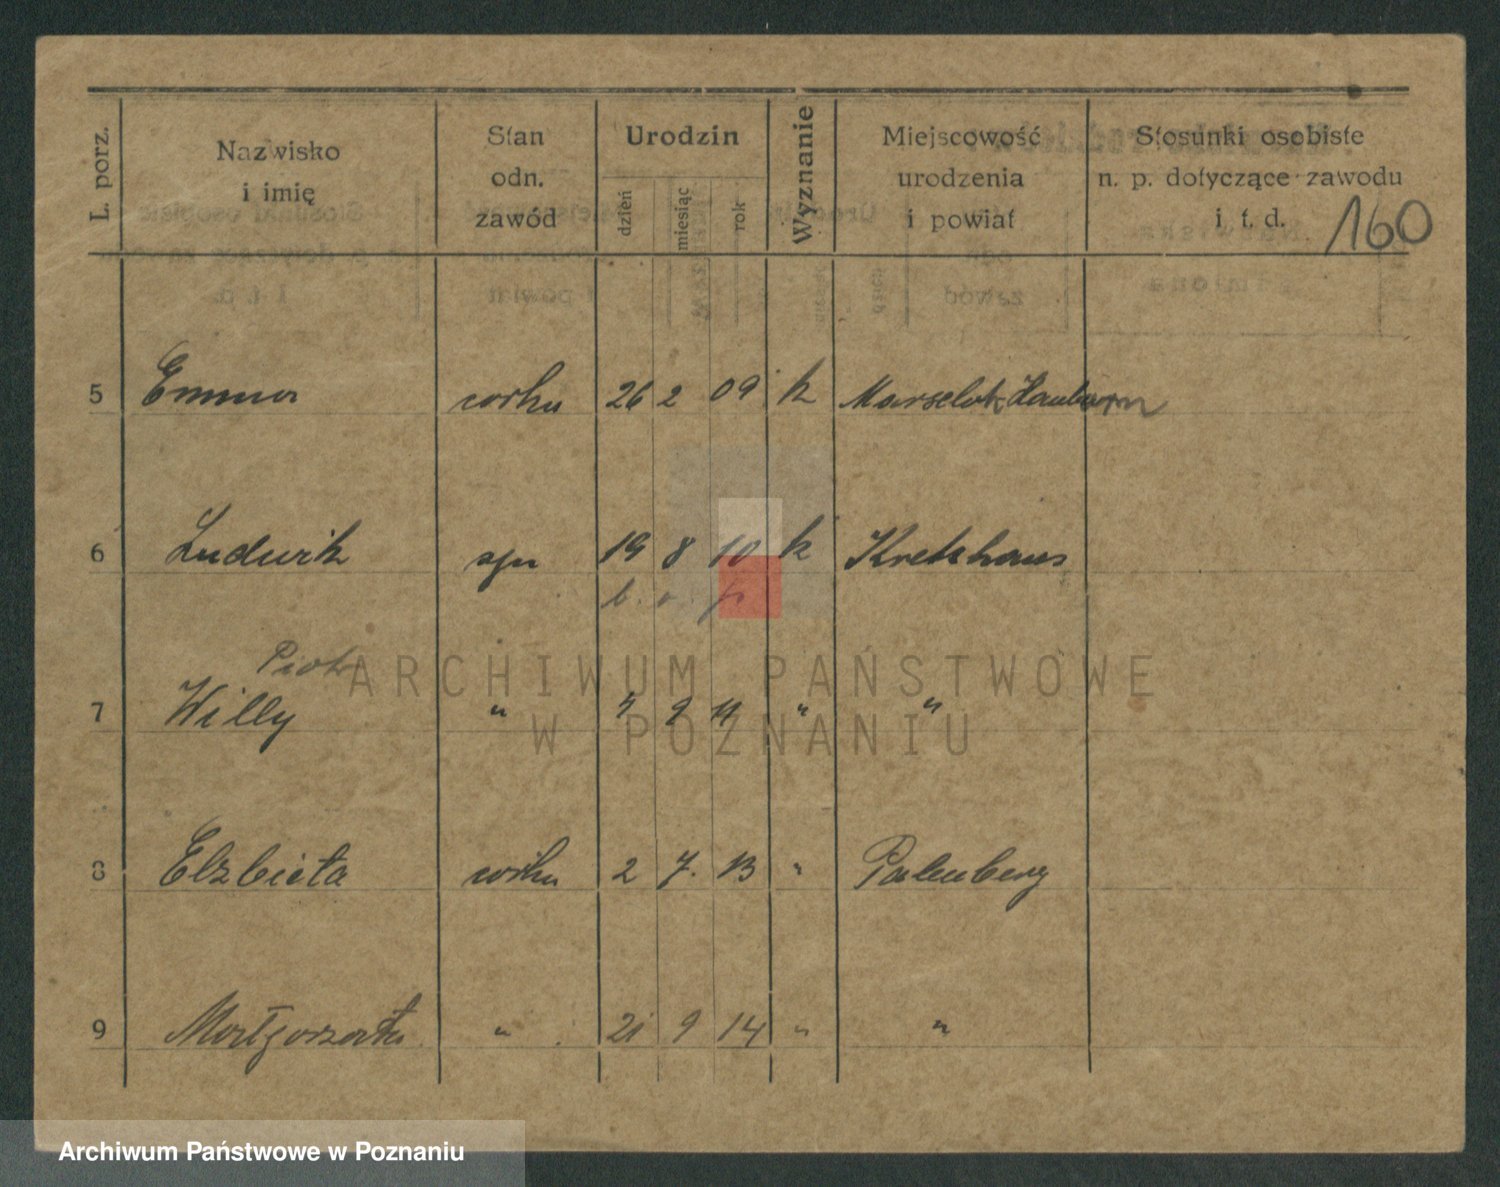 L. porz. Nazwisko i imię Stan odn. zawód Urodzin dzień miesiąc rok Wyznanie Miejscowość urodzenia i powiat Stosunki osobiste n. p. dotyczące zawodu i. t. d. 160
5 Emma córka 26 2 09 k Hamborn
6 Ludwik syn 19 8 10 k
Piotr
7 Willy " 9 11 " "
ARCHIWUM PAŃSTWOWE
W POZNANIU
8 Elżbieta córka 2 7. 13 " Palenberg
9 Małgorzata " 21 9 14 " "
Archiwum Państwowe w Poznaniu